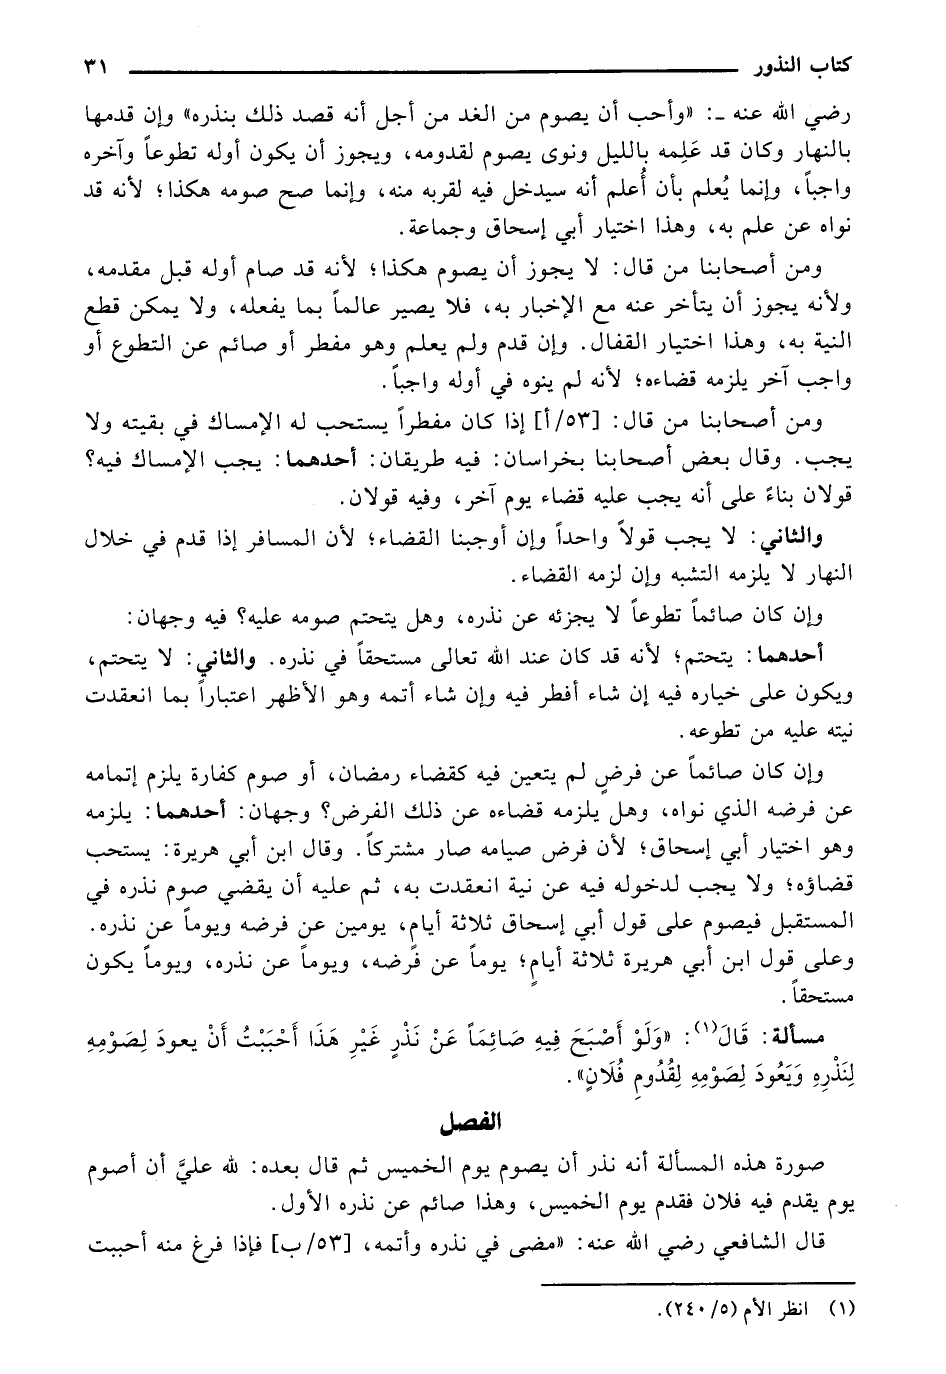 كتاب النذور ٣١
رضي الله عنه ـ: «وأحب أن يصوم من الغد من أجل أنه قصد ذلك بنذره» وإن قدمها
بالنهار وكان قد عَلِمه بالليل ونوى يصوم لقدومه، ويجوز أن يكون أوله تطوعاً وآخره
واجباً، وإنما يُعلم بأن أُعلم أنه سيدخل فيه لقربه منه، وإنما صح صومه هكذا؛ لأنه قد
نواه عن علم به، وهذا اختيار أبي إسحاق وجماعة.
ومن أصحابنا من قال: لا يجوز أن يصوم هكذا؛ لأنه قد صام أوله قبل مقدمه،
ولأنه يجوز أن يتأخر عنه مع الإخبار به، فلا يصير عالماً بما يفعله، ولا يمكن قطع
النية به، وهذا اختيار القفال. وإن قدم ولم يعلم وهو مفطر أو صائم عن التطوع أو
واجب آخر يلزمه قضاءه؛ لأنه لم ينوه في أوله واجباً.
ومن أصحابنا من قال: [٥٣/أ] إذا كان مفطراً يستحب له الإمساك في بقيته ولا
يجب. وقال بعض أصحابنا بخراسان: فيه طريقان: أحدهما: يجب الإمساك فيه؟
قولان بناءً على أنه يجب عليه قضاء يوم آخر، وفيه قولان.
والثاني: لا يجب قولاً واحداً وإن أوجبنا القضاء؛ لأن المسافر إذا قدم في خلال
النهار لا يلزمه التشبه وإن لزمه القضاء.
وإن كان صائماً تطوعاً لا يجزئه عن نذره، وهل يتحتم صومه عليه؟ فيه وجهان:
أحدهما: يتحتم؛ لأنه قد كان عند الله تعالى مستحقاً في نذره. والثاني: لا يتحتم،
ويكون على خياره فيه إن شاء أفطر فيه وإن شاء أتمه وهو الأظهر اعتباراً بما انعقدت
نيته عليه من تطوعه.
وإن كان صائماً عن فرضٍ لم يتعين فيه كقضاء رمضان، أو صوم كفارة يلزم إتمامه
عن فرضه الذي نواه، وهل يلزمه قضاءه عن ذلك الفرض؟ وجهان: أحدهما: يلزمه
وهو اختيار أبي إسحاق؛ لأن فرض صيامه صار مشتركاً. وقال ابن أبي هريرة: يستحب
قضاؤه؛ ولا يجب لدخوله فيه عن نية انعقدت به، ثم عليه أن يقضي صوم نذره في
المستقبل فيصوم على قول أبي إسحاق ثلاثة أيام، يومين عن فرضه ويوماً عن نذره.
وعلى قول ابن أبي هريرة ثلاثة أيامٍ؛ يوماً عن فرضه، ويوماً عن نذره، ويوماً يكون
مستحقاً.
مسألة: قَالَ(١): «وَلَوْ أَصْبَحَ فِيهِ صَائِمَاً عَنْ نَذْرٍ غَيْرِ هَذَا أَحْبَبْتُ أَنْ يعودَ لِصَوْمِهِ
لِنَذْرِهِ وَيَعُودَ لِصَوْمِهِ لِقُدُومِ فُلَانٍ».
الفصل
صورة هذه المسألة أنه نذر أن يصوم يوم الخميس ثم قال بعده: لله عليَّ أن أصوم
يوم يقدم فيه فلان فقدم يوم الخميس، وهذا صائم عن نذره الأول.
قال الشافعي رضي الله عنه: «مضى في نذره وأتمه، [٥٣/ب] فإذا فرغ منه أحببت
(١) انظر الأم (٢٤٠/٥).